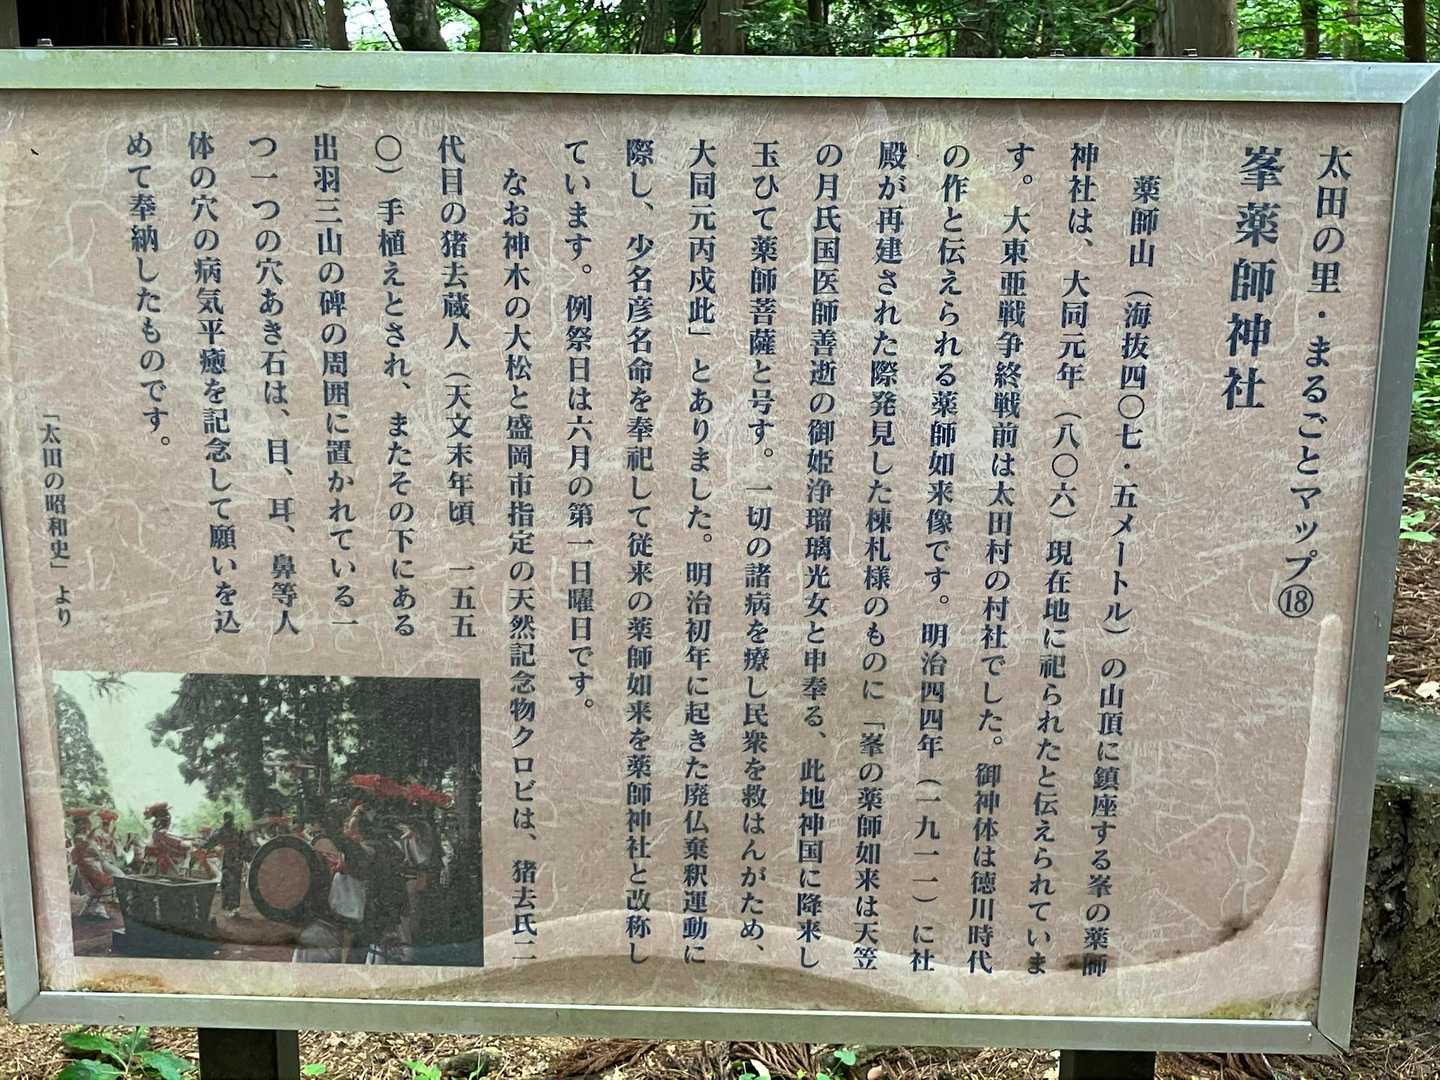 太田の里・まるごとマップ⑱
峯薬師神社
薬師山（海抜四〇七・五メートル）の山頂に鎮座する峯の薬師
神社は、大同元年（八〇六）現在地に祀られたと伝えられていま
す。大東亜戦争終戦前は太田村の村社でした。御神体は徳川時代
の作と伝えられる薬師如来像です。明治四四年（一九一一）に社
殿が再建された際発見した棟札様のものに「峯の薬師如来は天笠
の月氏国医師善逝の御姫浄瑠璃光女と申奉る、此地神国に降来し
玉ひて薬師菩薩と号す。一切の諸病を療し民衆を救はんがため、
大同元丙戍此」とありました。明治初年に起きた廃仏棄釈運動に
際し、少名彦名命を奉祀して従来の薬師如来を薬師神社と改称し
ています。例祭日は六月の第一日曜日です。
なお神木の大松と盛岡市指定の天然記念物クロビは、猪去氏二
代目の猪去蔵人（天文末年頃　一五五
〇）手植えとされ、またその下にある
出羽三山の碑の周囲に置かれている一
つ一つの穴あき石は、目、耳、鼻等人
体の穴の病気平癒を記念して願いを込
めて奉納したものです。
「太田の昭和史」より